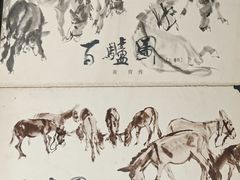 百驢圖
黄胄作